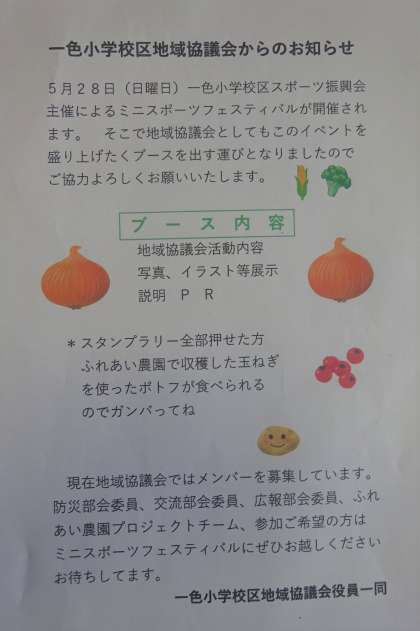 一色小学校区地域協議会からのお知らせ
5月28日（日曜日）一色小学校区スポーツ振興会
主催によるミニスポーツフェスティバルが開催され
ます。　そこで地域協議会としてもこのイベントを
盛り上げたくブースを出す運びとなりましたので
ご協力よろしくお願いいたします。
ブース内容
地域協議会活動内容
写真、イラスト等展示
説明　ＰＲ
＊スタンプラリー全部押せた方
ふれあい農園で収穫した玉ねぎ
を使ったポトフが食べられる
のでガンバってね
現在地域協議会ではメンバーを募集しています。
防災部会委員、交流部会委員、広報部会委員、ふれ
あい農園プロジェクトチーム、参加ご希望の方は
ミニスポーツフェスティバルにぜひお越しください
お待ちしてます。
一色小学校区地域協議会役員一同